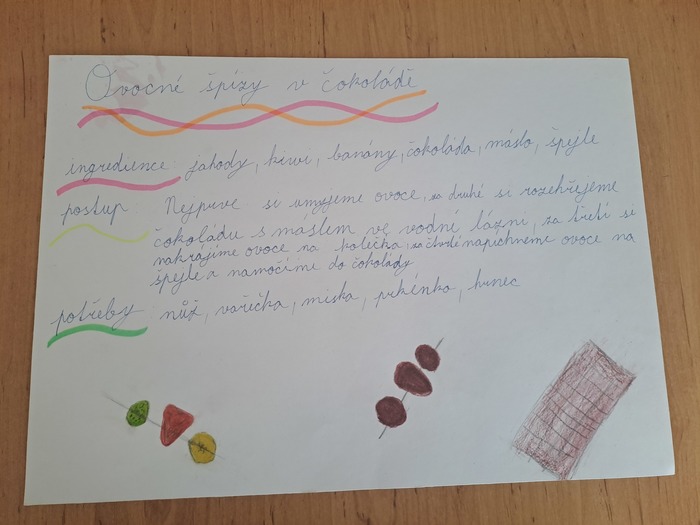 Ovocné špízy v čokoládě
ingredience jahody, kiwi, banány, čokoláda, máslo, špejle
postup Nejprve si umyjeme ovoce, za druhé si rozehřejeme
čokoládu s máslem ve vodní lázni, za třetí si
nakrájíme ovoce na kolečka, za čtvrté napíchneme ovoce na
špejle a namočíme do čokolády
potřeby nůž, vařečka, miska, prkénko, hrnec